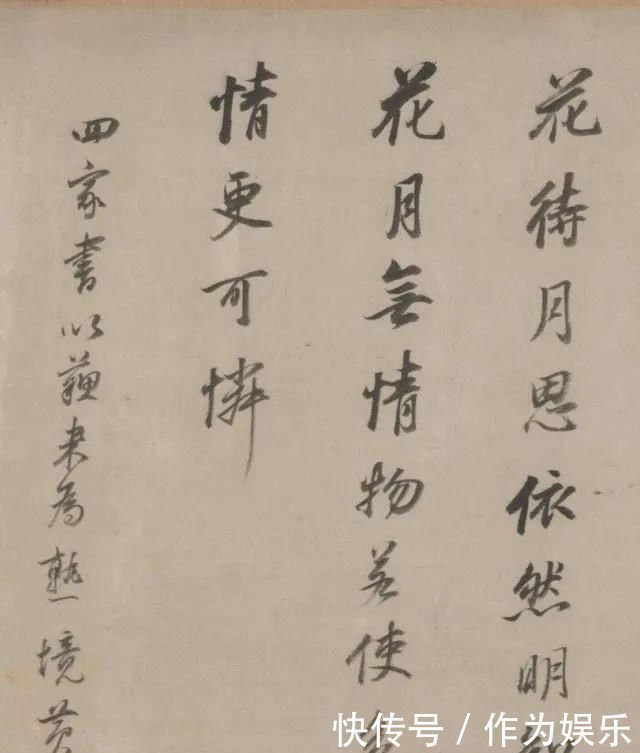 花待月思依然明
花月無情物若使
情更可憐
四家書以蘓米為甦境黄
快传号／作为娱乐